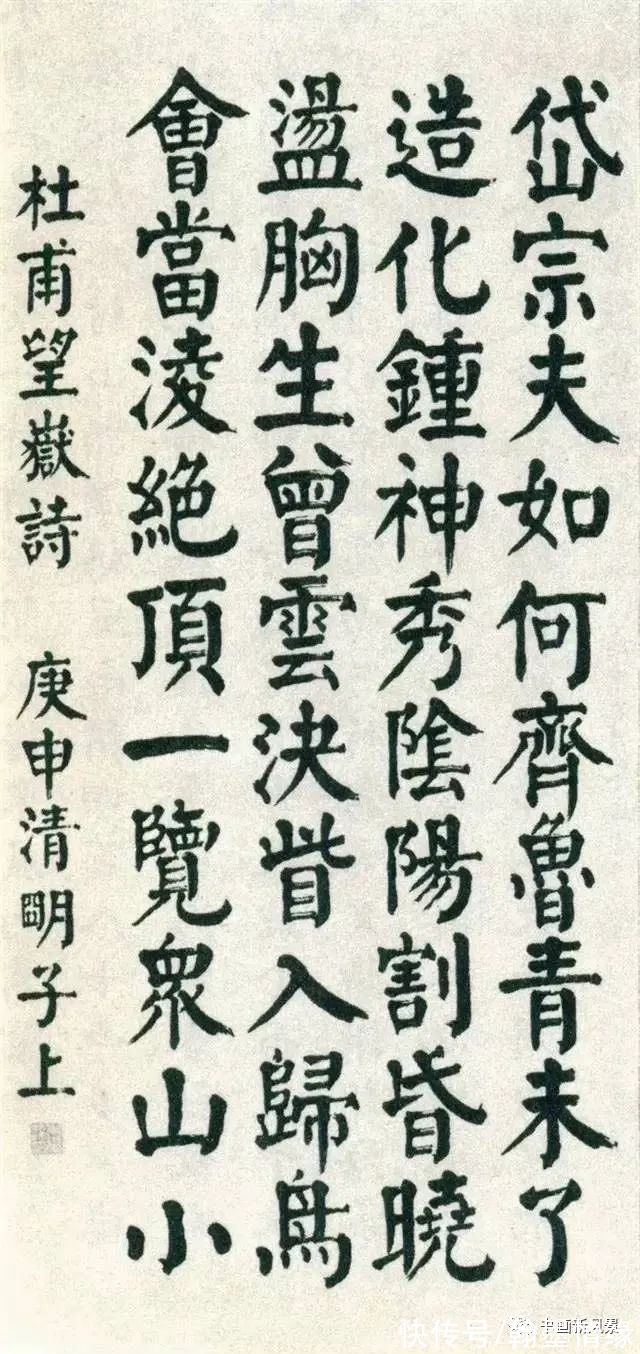 岱宗夫如何齊魯青未了
造化鍾神秀陰陽割昏曉
盪胸生曾雲決眥入歸鳥
會當淩絶頂一覽眾山小
杜甫望嶽詩 庚申清明子上
快传号/